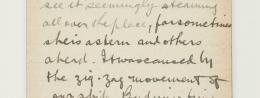 see it seemingly steaming
all over the place, for sometimes
she is astern and others
ahead. It was caused by
the zig-zag movement of
our ship. During